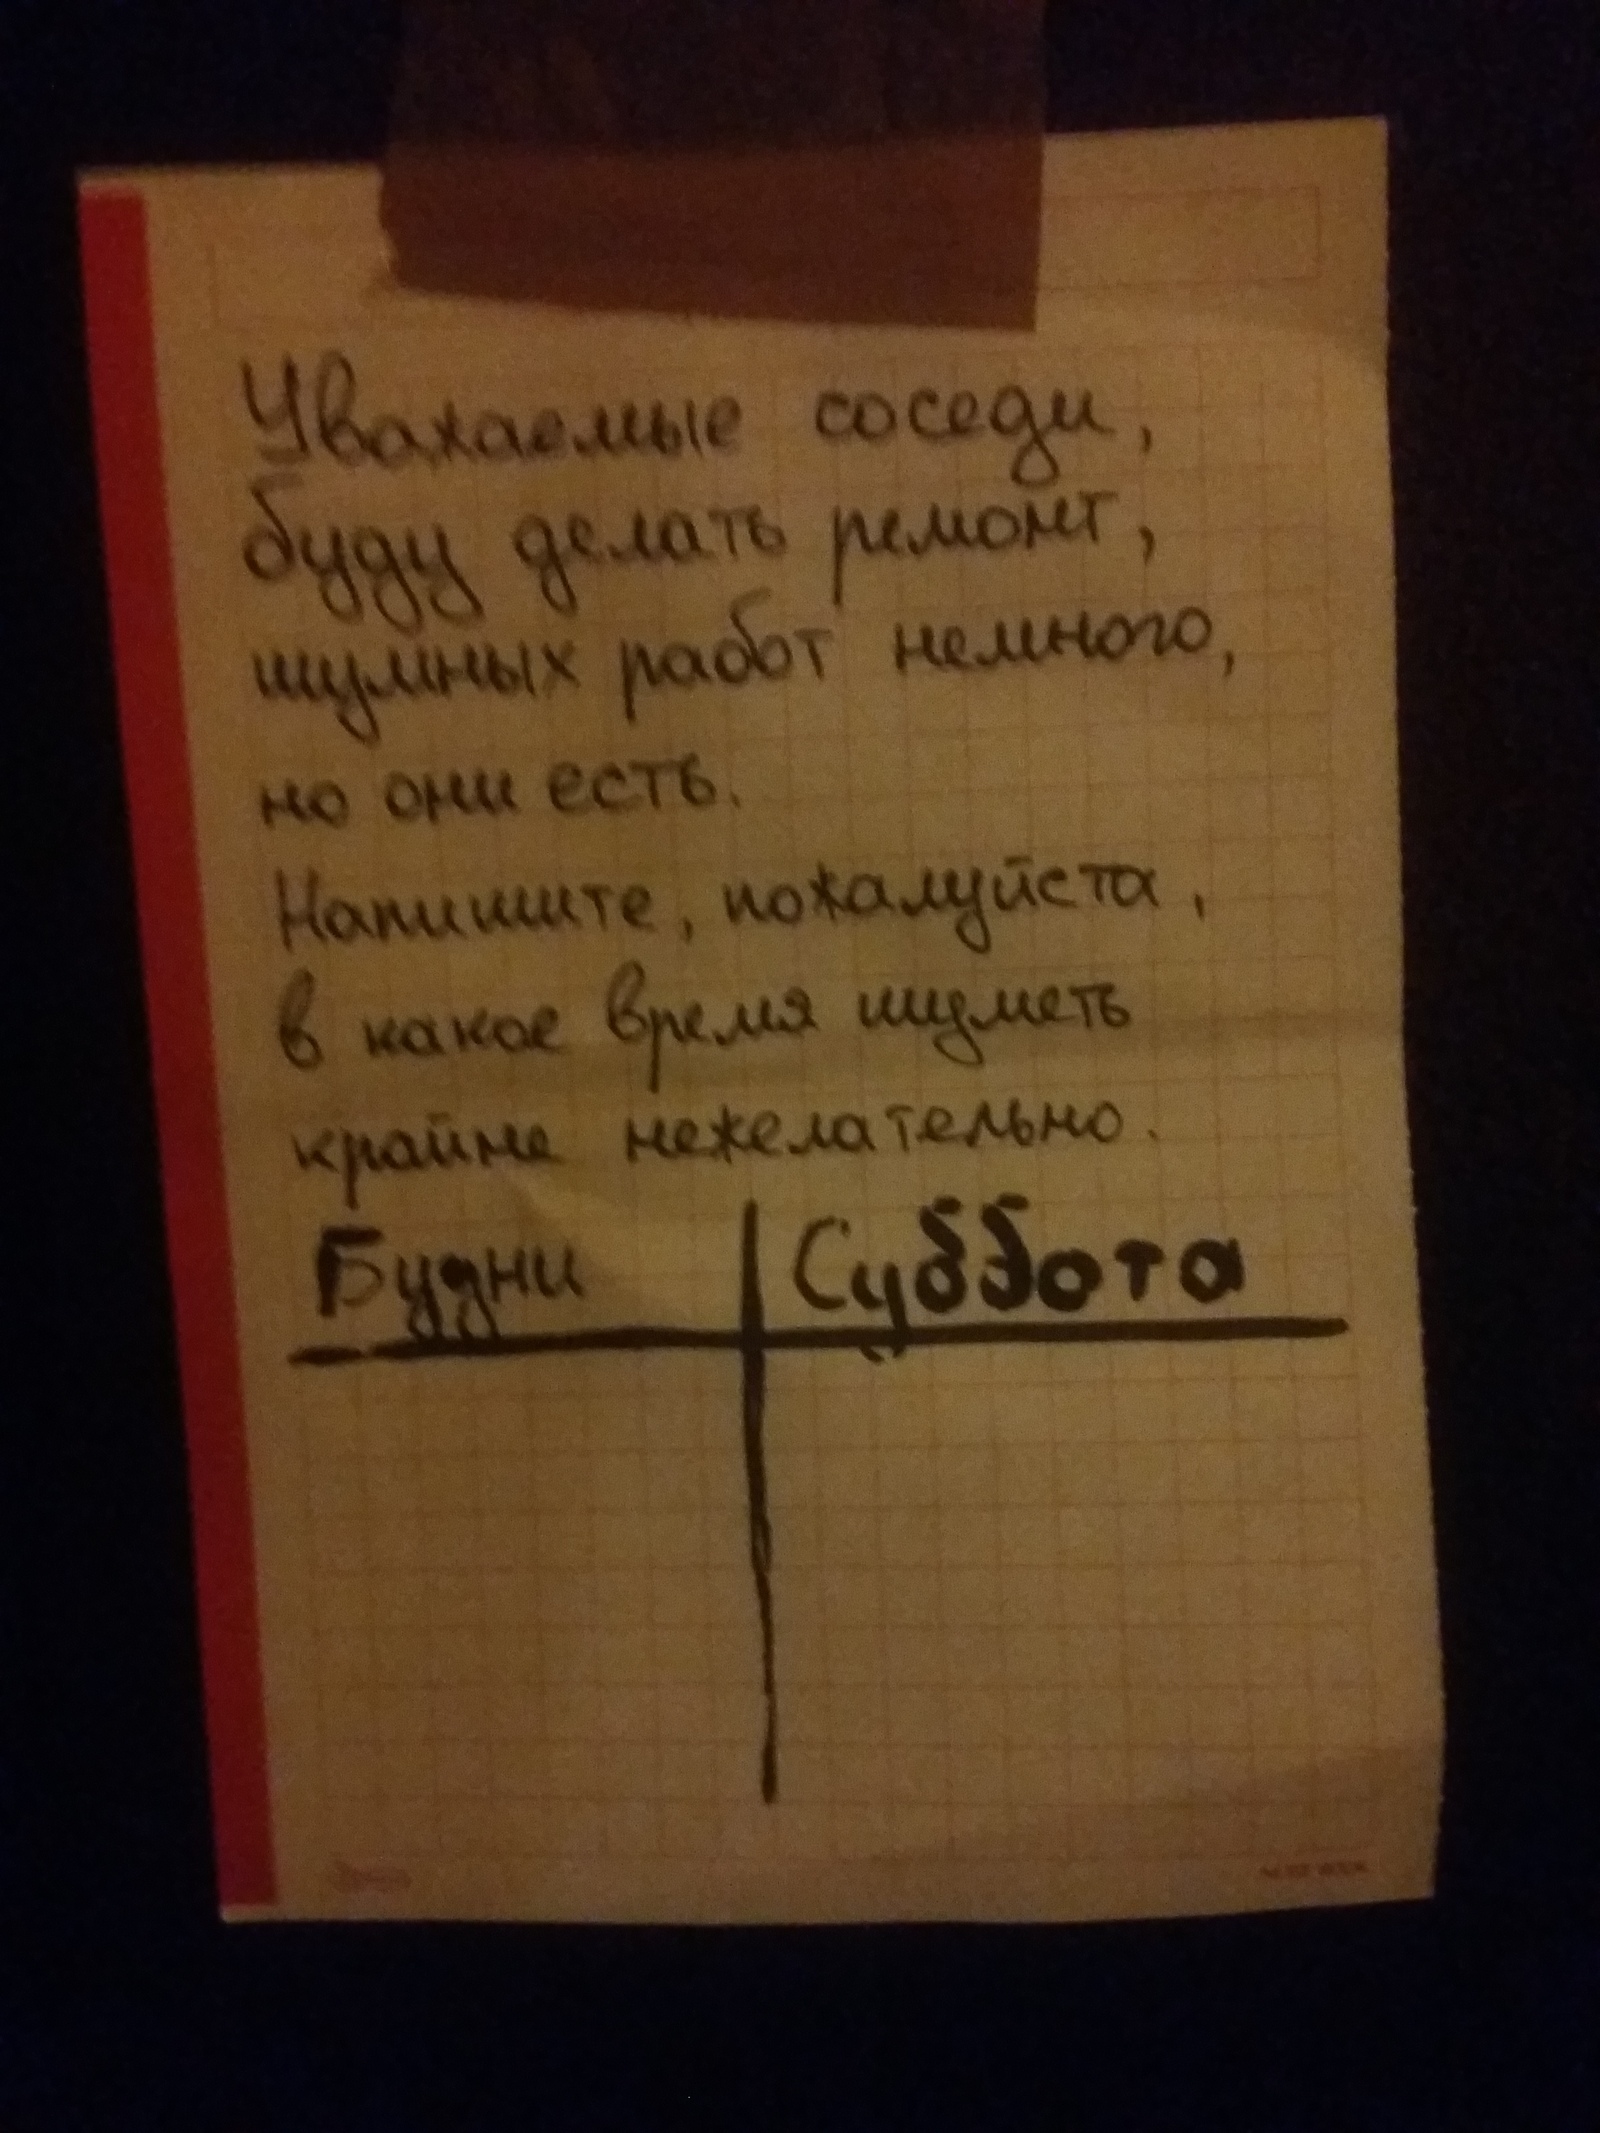 Уважаемые соседи,
буду делать ремонт,
шумных работ немного,
но они есть.
Напишите, пожалуйста,
в какое время шуметь
крайне нежелательно.
Будни Суббота